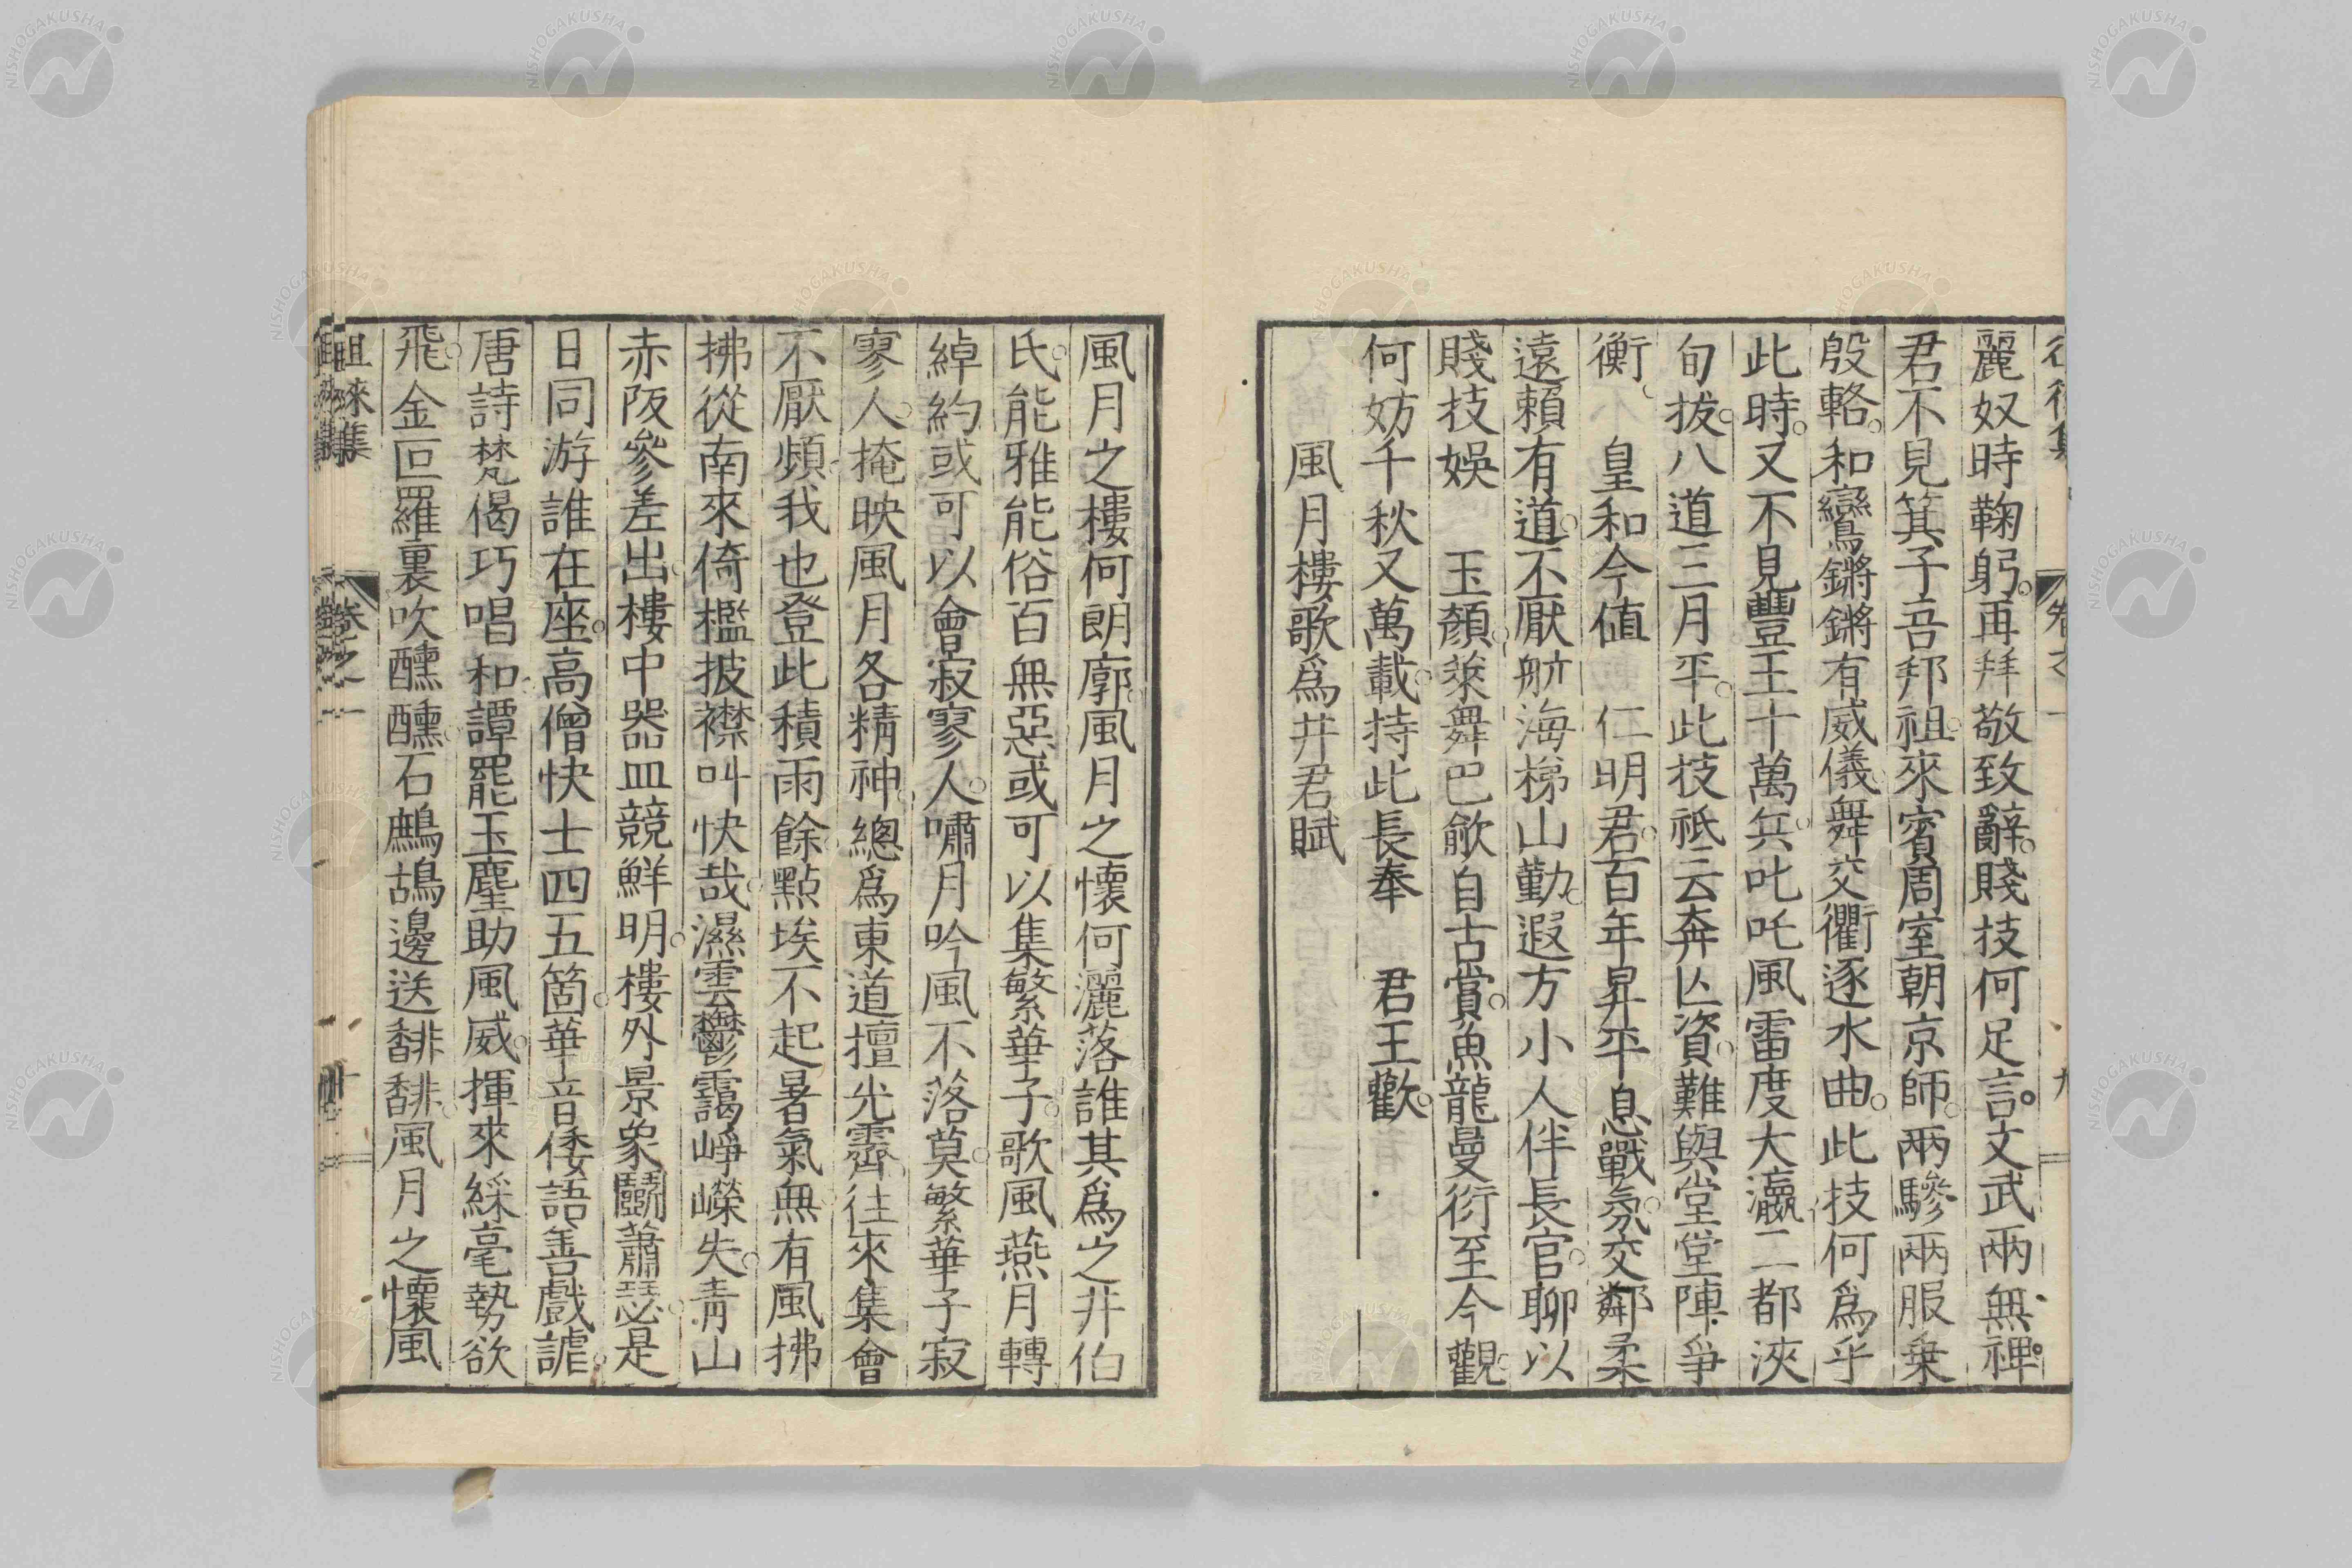 麗奴時鞠躬。再拜敬致辭。賤技何足言。文武兩無禆。
君不見箕子吾邦祖。來賓周室朝京師。兩驂兩服乗
殷輅。和鸞鏘鏘有威儀。舞交衢逐水曲。此技何爲乎
此時。又不見豐王十萬兵。叱吒風雷度大瀛。二都浹
旬拔。八道三月平。此技祗云奔亾資。難與堂堂陣爭
衡。　皇和今値　仁明君。百年昇平息戰氛。交鄰柔
遠賴有道。不厭航海梯山勤。遐方小人伴長官。聊以
賤技娛　玉顏。萊舞巴歈自古賞。魚龍曼衍至今觀。
何妨千秋又萬載。持此長奉　君王歡。
風月樓歌爲井君賦
風月之樓何朗廓。風月之懷何灑落誰其爲之井伯
氏。能雅能俗百無惡。或可以集繁華子。歌風燕月轉
綽約。或可以會寂寥人。嘯月吟風不落莫。繁華子寂
寥人。掩映風月各精神。總爲東道擅光霽。往來集會
不厭頻。我也登此積雨餘。點埃不起暑氣無。有風拂
拂從南來。倚檻披襟叫快哉。濕雲鬱靄崢嶸失。青山
赤阪參差出。樓中器皿競鮮明。樓外景象鬭蕭瑟。是
日同游誰在座。高僧快士四五箇。華音倭語善戲謔。
唐詩梵偈巧唱和。譚罷玉麈助風威。揮來綵毫勢欲
飛。金叵羅裏吹醺醺。石鷓鴣邊送馡馡。風月之懷風
徂徠集　卷之一